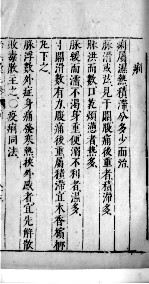 痢
痢屬濕熱積滯分多少而治
脈滑或弦見于關腹痛後重者積滯多
脈洪而數口乾煩憊者熱多
脈緩而濡不渴身重便溺不利者濕多
寸關滑數有力腹痛後重屬積滯宜木香檳榔
丸下之
脈浮數外症身痛發寒熱挾外感者宜先解散
敗毒散主之〇疫痢同法